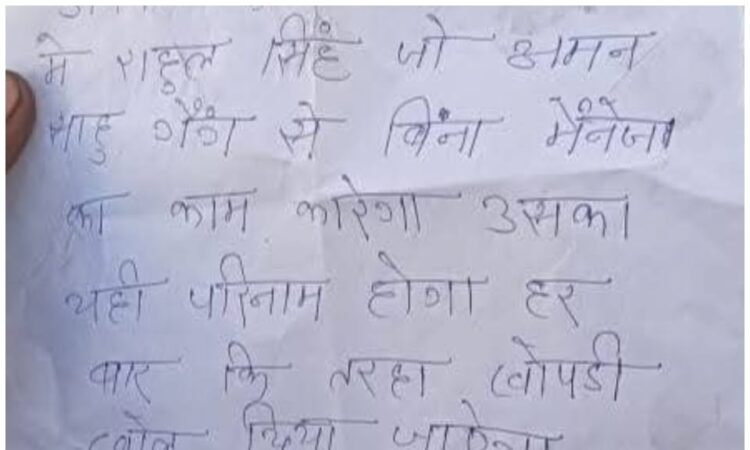 मे राहुल सिंह जो अमन
साहु गैंग से बिंना मैंनेजा
का काम कारेगा उसका
यही परिनाम होगा हर
बार कि तरहा खोपडी
खोल दिया जाऐगा